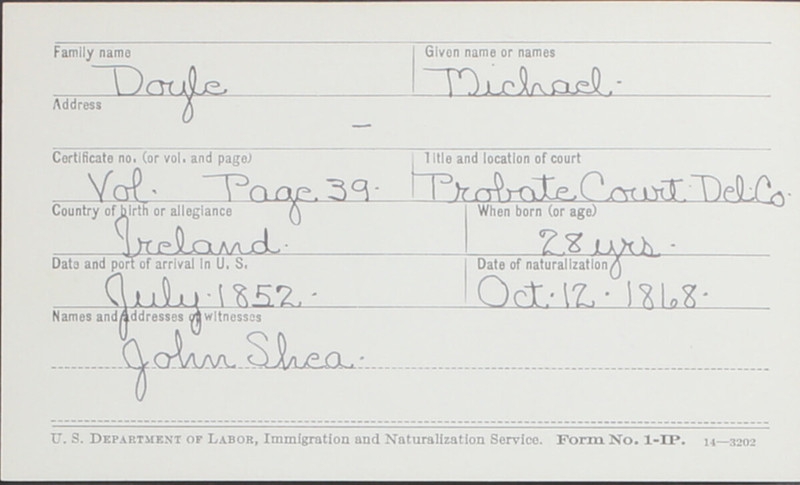 Family name Given name or names
Doyle Michael.
Address
—
Certificate no. (or vol. and page) Title and location of court
Vol. Page 39. Probate Court Del. Co.
Country of birth or allegiance When born (or age)
Ireland. 28 yrs.
Date and port of arrival in U. S. Date of naturalization
July. 1852. Oct. 12. 1868.
Names and addresses of witnesses
John Shea.
U. S. DEPARTMENT OF LABOR, Immigration and Naturalization Service. Form No. 1-IP. 14—3202